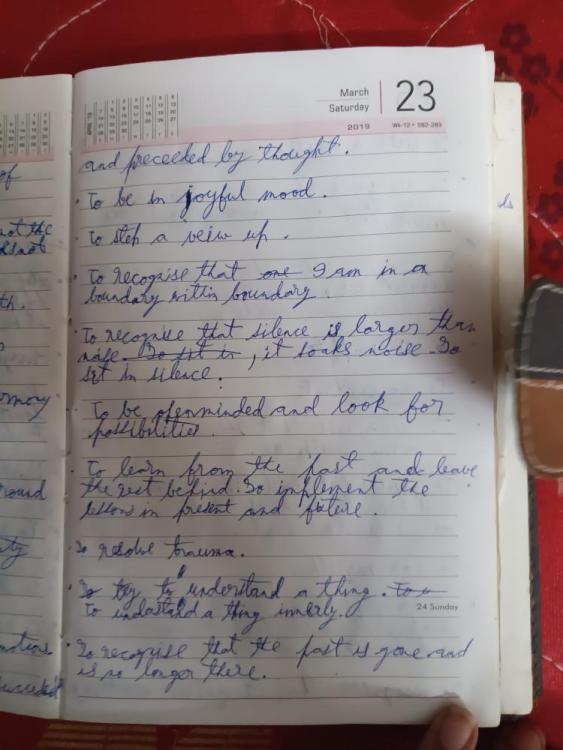 March
Saturday
23
2019
Wk-12 • 082-283
and preceeded by thought.
· To be in joyful mood.
· To step a veiw up.
· To recognise that one I am in a
boundary within boundary.
· To recognise that silence is larger than
noise. So sit in, it soaks noise. So
sit in silence.
· To be openminded and look for
possibilities.
· To learn from the past and leave
the rest behind. To implement the
lessons in present and future.
· To resolve trauma.
· To try to understand a thing. To u
To undastand a thing innerly.
24 Sunday
· To recognise that the past is gone and
is no longer there.
of
not the
th.
mony
round
ty